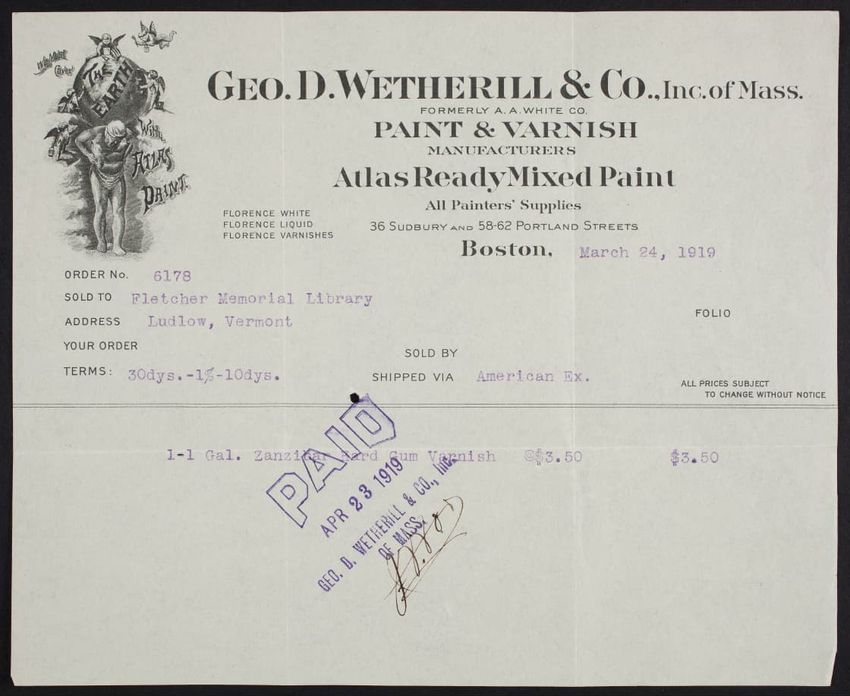 We Must
Cover
THE
EARTH
With
ATLAS
PAINT.
GEO. D. WETHERILL & CO., INC. of MASS.
FORMERLY A. A. WHITE CO.
PAINT & VARNISH
MANUFACTURERS
Atlas Ready Mixed Paint
All Painters' Supplies
FLORENCE WHITE
FLORENCE LIQUID
FLORENCE VARNISHES
36 SUDBURY AND 58-62 PORTLAND STREETS
Boston, March 24, 1919
ORDER No. 6178
SOLD TO Fletcher Memorial Library
ADDRESS Ludlow, Vermont
FOLIO
YOUR ORDER
SOLD BY
TERMS: 30dys.-1%-10dys.
SHIPPED VIA American Ex.
ALL PRICES SUBJECT
TO CHANGE WITHOUT NOTICE
1-1 Gal. Zanzibar Hard Gum Varnish @$3.50 $3.50
PAID
APR 23 1919
GEO. D. WETHERILL & CO., Inc.
OF MASS.